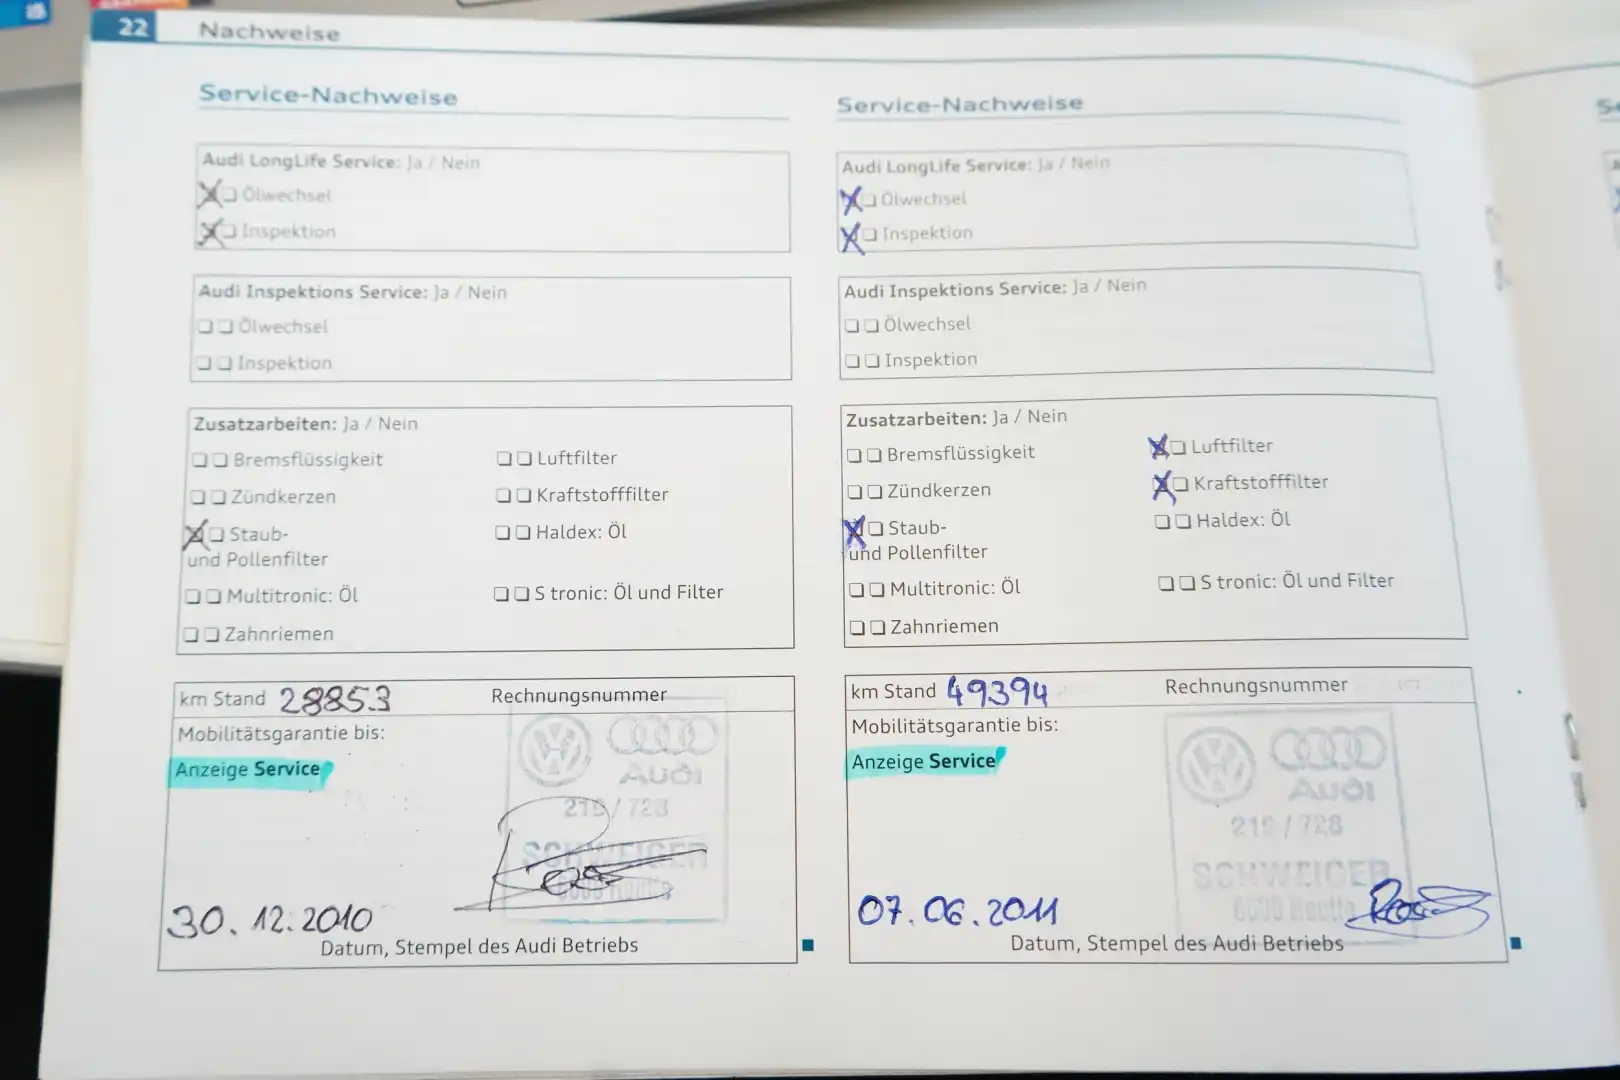 22 Nachweise
Service-Nachweise
Audi LongLife Service: Ja / Nein
Ölwechsel
Inspektion
Audi Inspektions Service: Ja / Nein
Ölwechsel
Inspektion
Zusatzarbeiten: Ja / Nein
Bremsflüssigkeit
Luftfilter
Zündkerzen
Kraftstofffilter
Staub-
und Pollenfilter
Haldex: Öl
Multitronic: Öl
S tronic: Öl und Filter
Zahnriemen
km Stand 28853
Rechnungsnummer
Mobilitätsgarantie bis:
Anzeige Service
Audi
219 / 728
SCHWEIGER
30.12.2010
Datum, Stempel des Audi Betriebs
Service-Nachweise
Audi LongLife Service: Ja / Nein
Ölwechsel
Inspektion
Audi Inspektions Service: Ja / Nein
Ölwechsel
Inspektion
Zusatzarbeiten: Ja / Nein
Bremsflüssigkeit
Luftfilter
Zündkerzen
Kraftstofffilter
Staub-
und Pollenfilter
Haldex: Öl
Multitronic: Öl
S tronic: Öl und Filter
Zahnriemen
km Stand 49394
Rechnungsnummer
Mobilitätsgarantie bis:
Anzeige Service
Audi
219 / 728
SCHWEIGER
6600 Reutte
07.06.2011
Datum, Stempel des Audi Betriebs